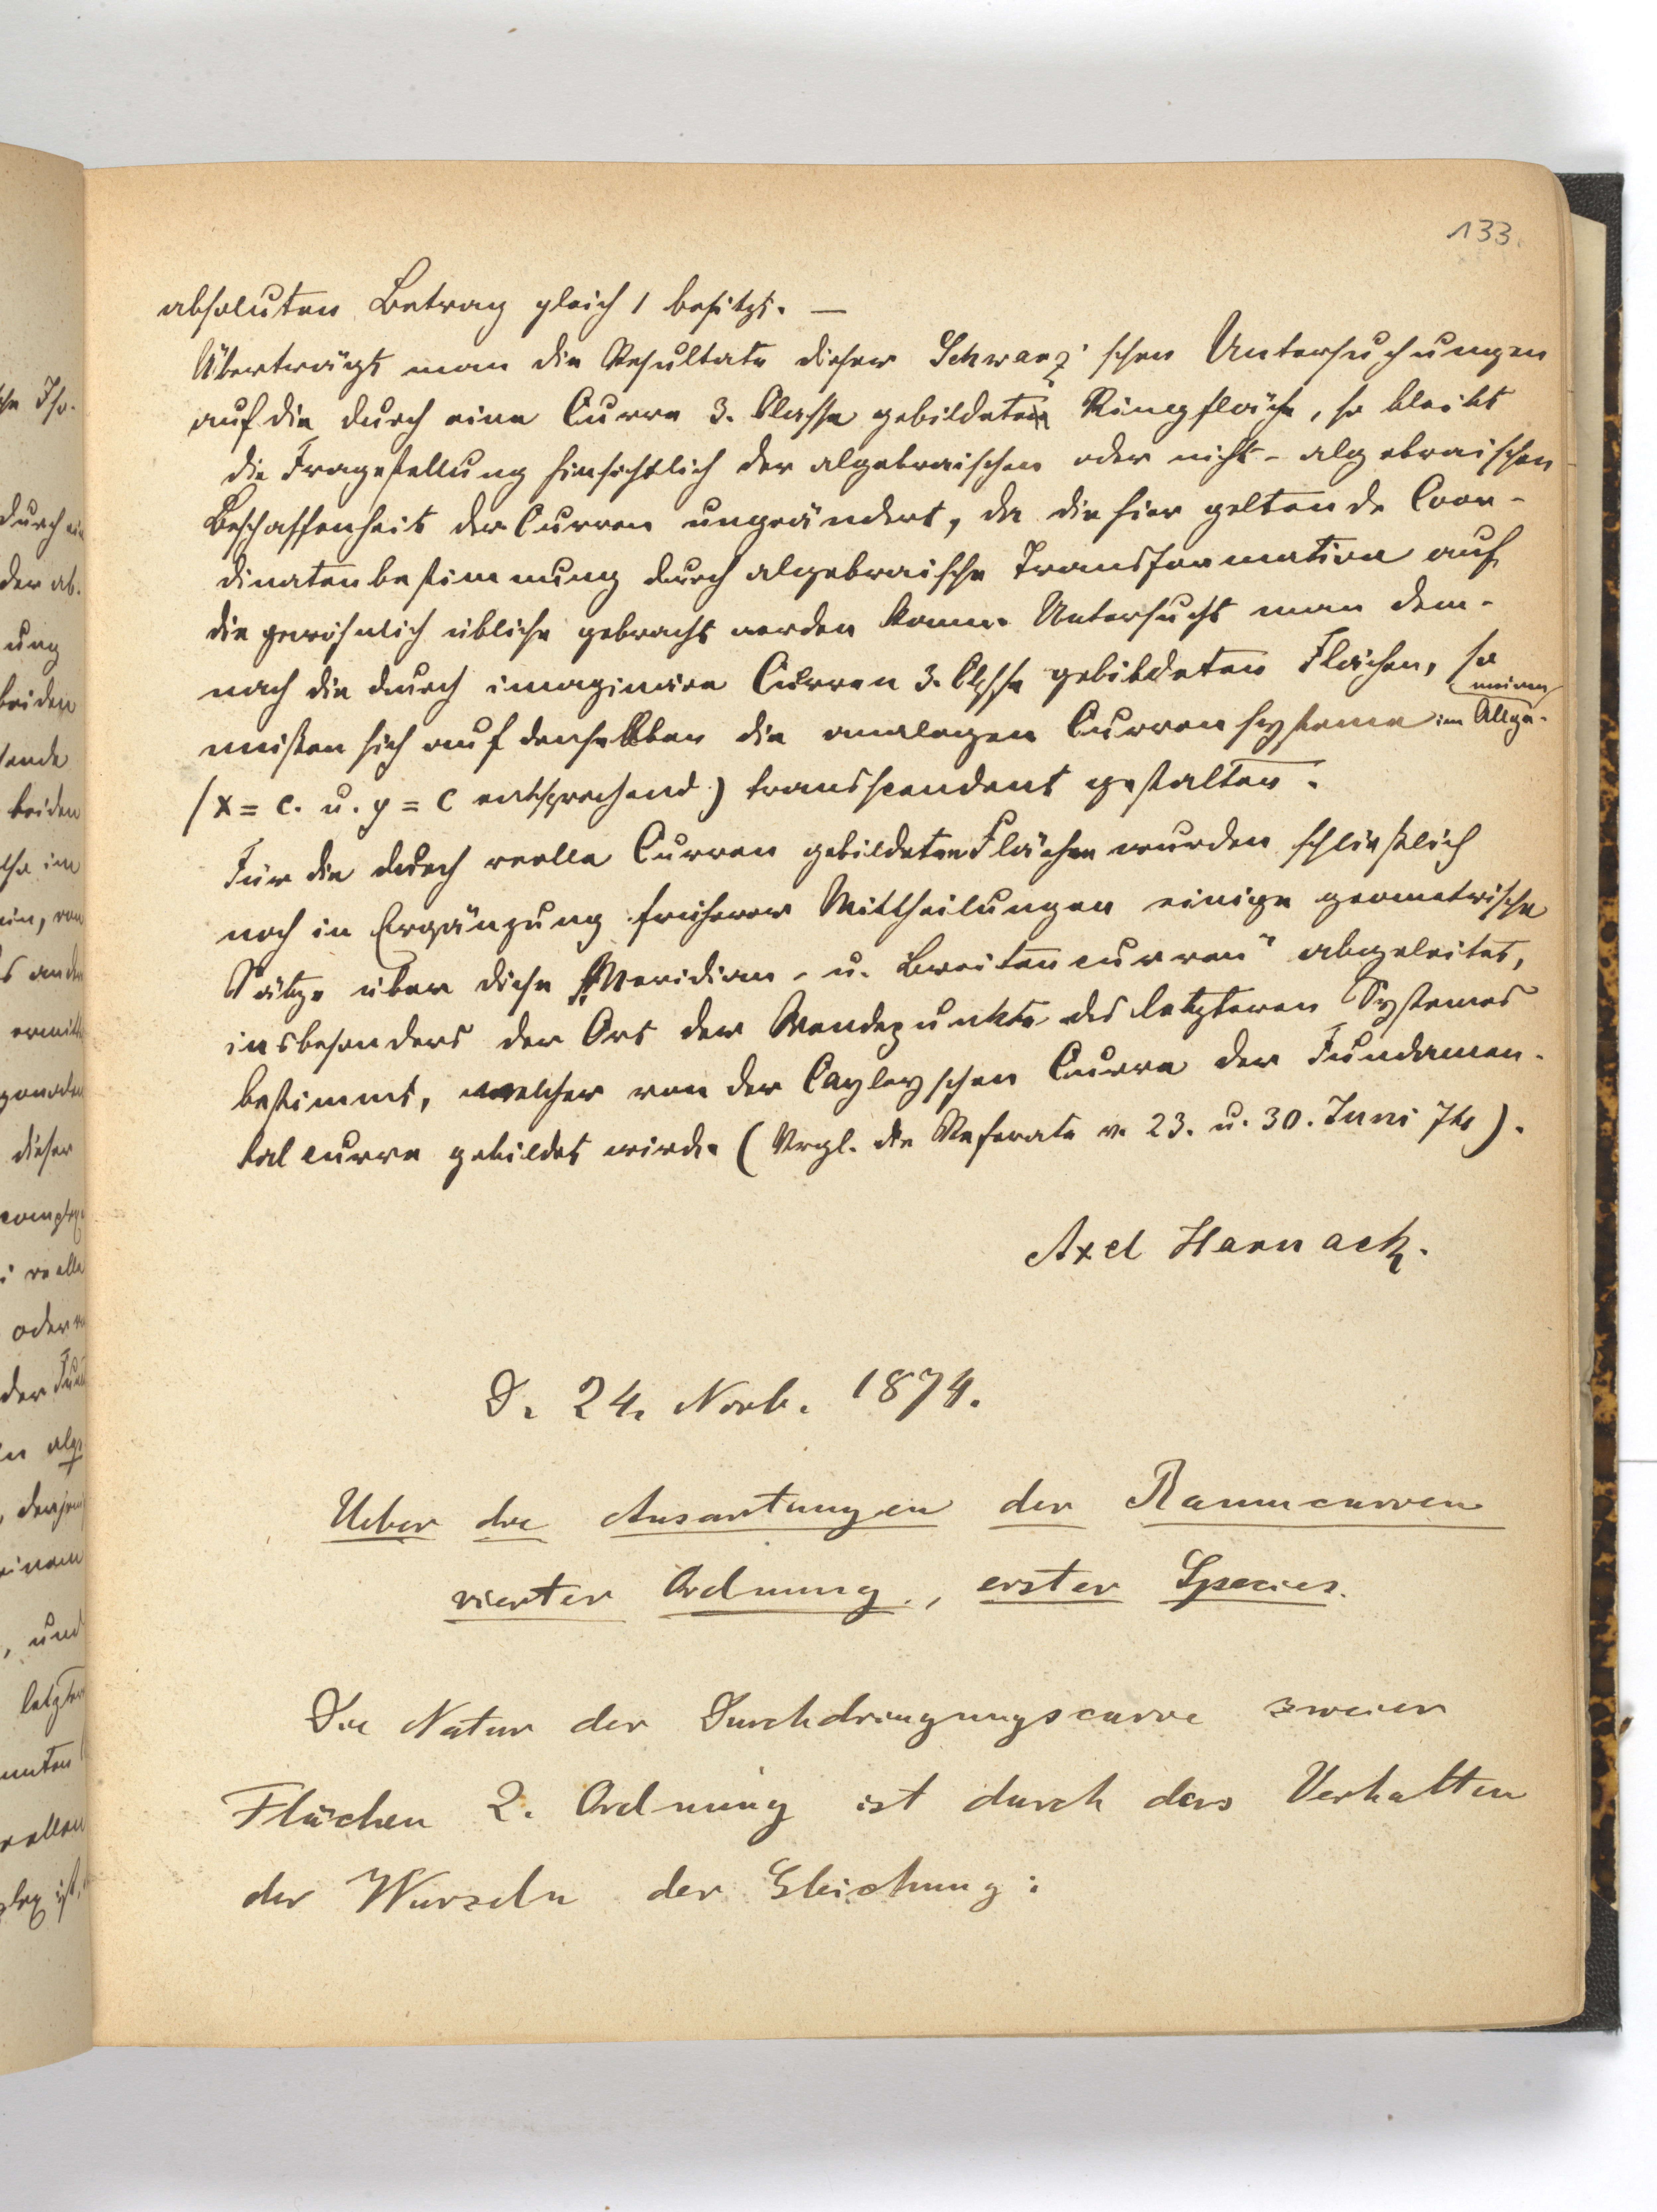 133.
absoluten Betrag gleich 1 besitzt. —
Überträgt man die Resultate dieser Schwarz'schen Untersuchungen
auf die durch eine Curve 3. Classe gebildete Ringfläche, so bleibt
die Fragestellung hinsichtlich der algebraischen oder nicht-algebraischen
Beschaffenheit der Curven ungeändert, da die hier geltende Coor-
dinatenbestimmung durch algebraische Transformation auf
die gewöhnlich übliche gebracht werden kann. Untersucht man dem-
nach die durch imaginäre Curven 3. Classe gebildeten Flächen, so
müssen sich auf denselben die analogen Curvensysteme im Allge-
meinen
(x = c. u. y = c entsprechend) transscendent gestalten.
Für die durch reelle Curven gebildeten Flächen wurden schließlich
noch in Ergänzung früherer Mittheilungen einige geometrische
Sätze über diese „Meridian- u. Breitencurven“ abgeleitet,
insbesonders der Ort der Wendepunkte des letzteren Systemes
bestimmt, welcher von der Cayleyschen Curve der Fundamen-
talcurve gebildet wird. (Vrgl. die Referate v. 23. u. 30. Juni 74).
Axel Harnack.
D. 24. Novb. 1874.
Ueber die Ausartungen der Raumcurven
vierter Ordnung, erster Species.
Die Natur der Durchdringungscurve zweier
Flächen 2. Ordnung ist durch das Verhalten
der Wurzeln der Gleichung: